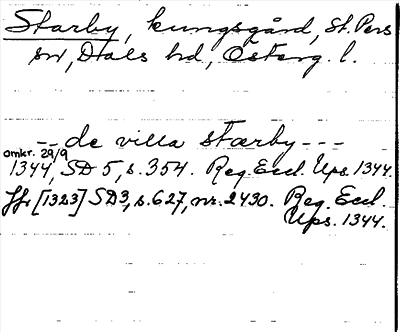 Starby, kungsgård, St. Pers
sn, Dals hd, Österg. l.
-- de villa stærby ---
omkr. 29/9
1344, SD 5, s. 354. Reg. Eccl. Ups. 1344.
Jfr [1323] SD3, s. 627, nr. 2430. Reg. Eccl.
Ups. 1344.